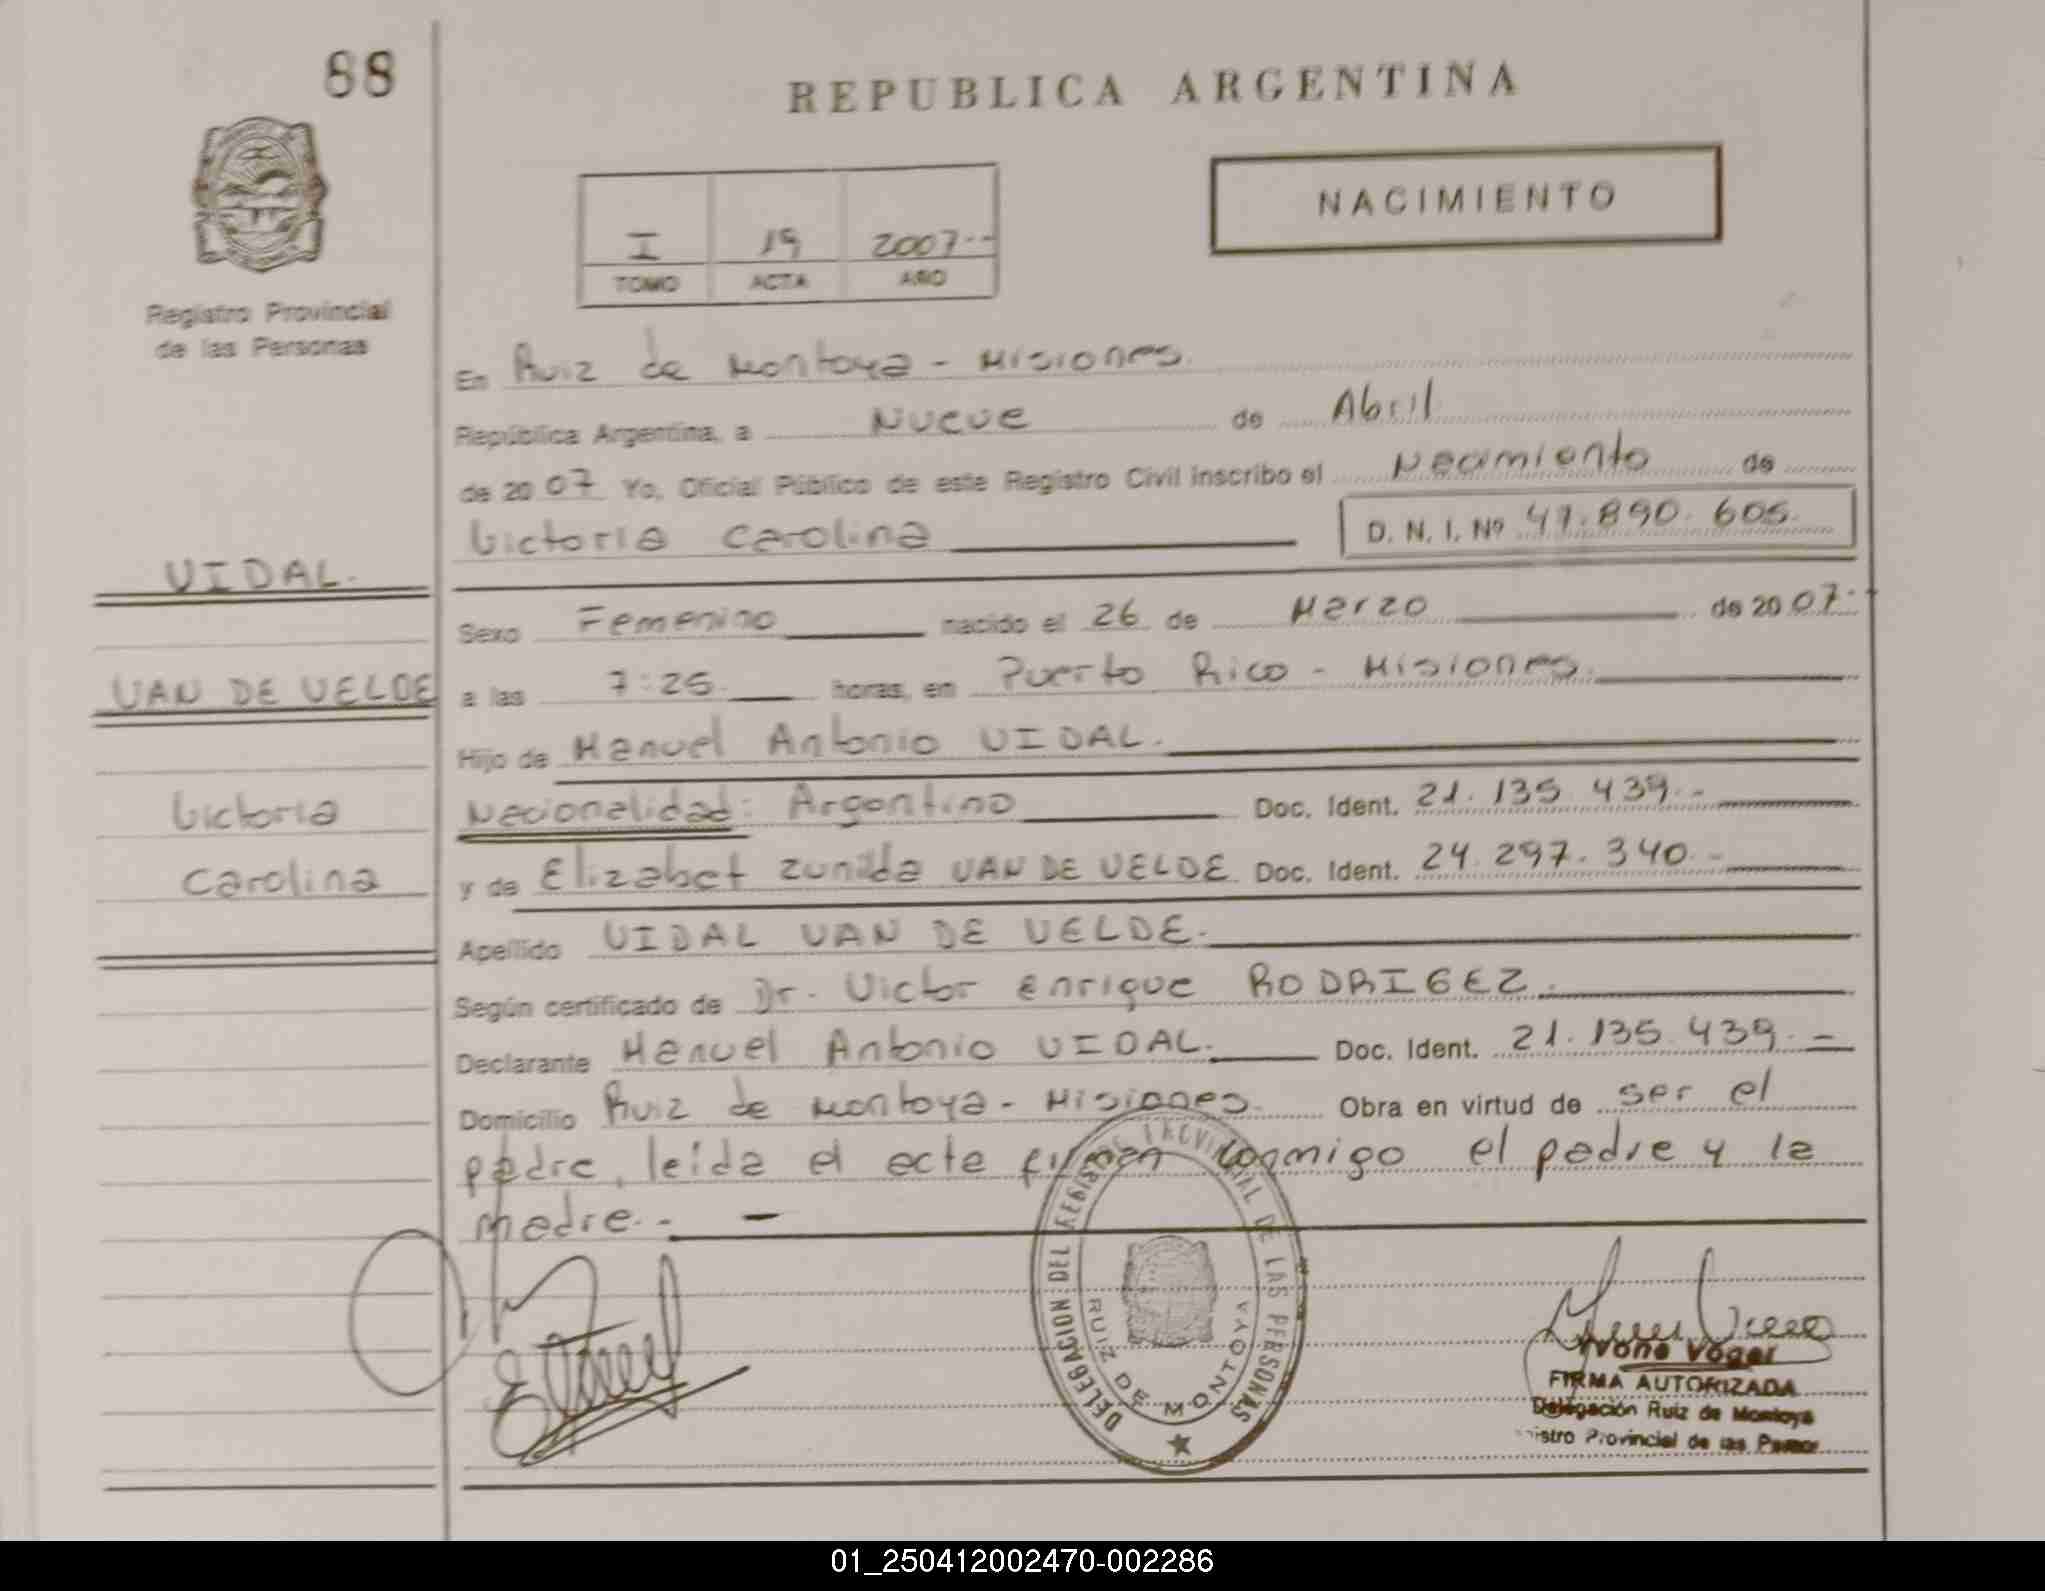 88
REPUBLICA ARGENTINA
NACIMIENTO
I 19 2007.--
TOMO ACTA AÑO
Registro Provincial
de las Personas
En Ruiz de Montoya - Misiones.
República Argentina, a Nueve de Abril
de 2007 Yo, Oficial Público de este Registro Civil inscribo el Nacimiento de
Victoria Carolina D. N. I. Nº 47.890.605.
VIDAL.
Sexo Femenino nacido el 26 de Marzo de 2007.-
VAN DE VELDE
a las 7:25 horas, en Puerto Rico - Misiones.
Hijo de Manuel Antonio VIDAL.
Victoria
Nacionalidad: Argentino Doc. Ident. 21.135.439.-
Carolina
y de Elizabet Zunilda VAN DE VELDE Doc. Ident. 24.297.340.-
Apellido VIDAL VAN DE VELDE.
Según certificado de Dr. Victor Enrique RODRIGEZ.
Declarante Manuel Antonio VIDAL. Doc. Ident. 21.135.439.-
Domicilio Ruiz de Montoya - Misiones. Obra en virtud de ser el
padre, leída el acta firman conmigo el padre y la
madre.- -
DELEGACION DEL REGISTRO PROVINCIAL DE LAS PERSONAS
RUIZ DE MONTOYA
Yvone Vogel
FIRMA AUTORIZADA
Delegación Ruiz de Montoya
istro Provincial de las Person
01_250412002470-002286